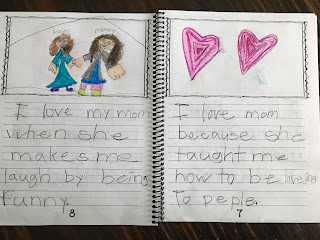 I love my mom
when she
makes me
laugh by being
funny.
8
I love mom
because she
taught me
how to be loveing
To peple.
7